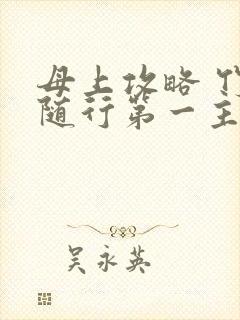 母上攻略
随行第一主
吴永英